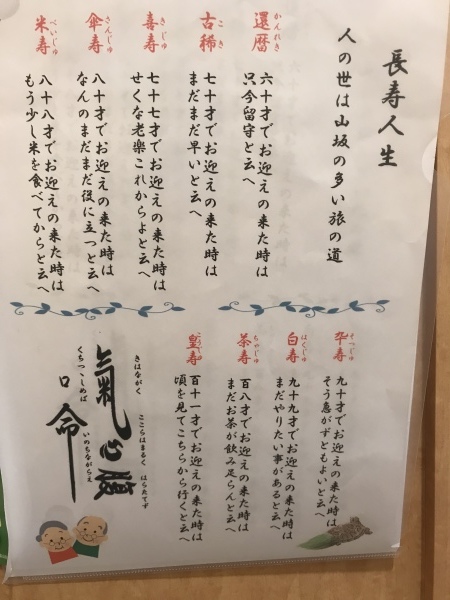 長寿人生
人の世は山坂の多い旅の道
還暦
かんれき
六十才でお迎えの来た時は
只今留守と云へ
古稀
こき
七十才でお迎えの来た時は
まだまだ早いと云へ
喜寿
きじゅ
七十七才でお迎えの来た時は
せくな老楽これからよと云へ
傘寿
さんじゅ
八十才でお迎えの来た時は
なんのまだまだ役に立つと云へ
米寿
べいじゅ
八十八才でお迎えの来た時は
もう少し米を食べてからと云へ
卒寿
そつじゅ
九十才でお迎えの来た時は
そう急がずともよいと云へ
白寿
はくじゅ
九十九才でお迎えの来た時は
まだやりたい事があると云へ
茶寿
ちゃじゅ
百八才でお迎えの来た時は
まだお茶が飲み足らんと云へ
皇寿
百十一才でお迎えの来た時は
頃を見てこちらから行くと云へ
氣心腹
きはながく
こころはまるく
はらたてず
口命
くちつゝしめば
いのちながらえ